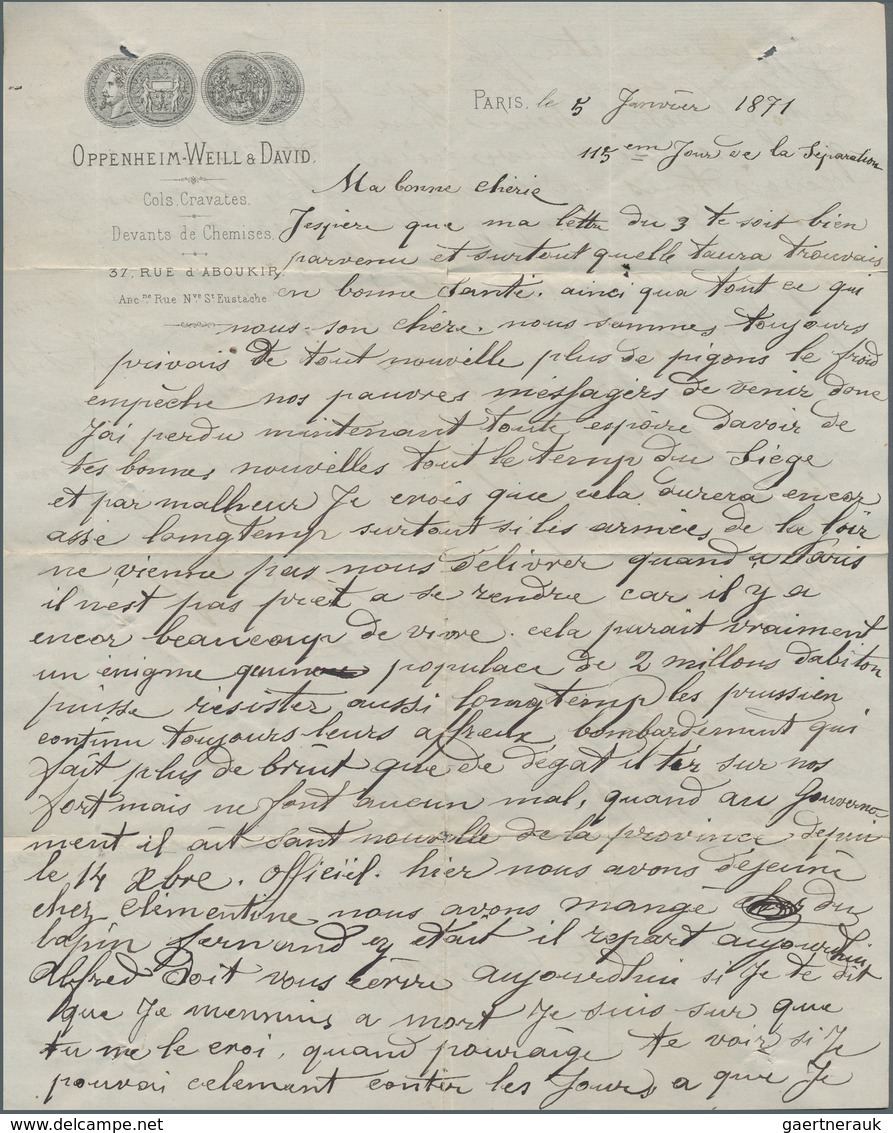 OPPENHEIM-WEILL & DAVID.
Cols, Cravates.
Devants de Chemises.
37, RUE d'ABOUKIR.
Anc.ne Rue Nve St Eustache
PARIS, le 5 Janvier 1871
115 em Jour de la Séparation
Ma bonne chérie
J'espère que ma lettre du 3 te soit bien
parvenu et surtout quelle taura trouvais
en bonne Santé. ainci qua tout ce qui
nous son chère. nous sommes toujours
privais de tout nouvelle plus de pigons le froid
empèche nos pauvres messagers de venir donc
J'ai perdu mintenant toute espoire davoir de
tes bonnes nouvelles tout le temp du Siège
et par malheur Je crois que cela durera encor
assé longtemp surtout si les armées de la loir
ne vienne pas nous délivrer quand a Paris
il n'est pas prèt a se rendre car il y a
encor beaucoup de vivre. cela parait vraiment
un énigme populace de 2 millons dabiton
puisse résister aussi longtemp les prussien
continu toujours leurs affreux bombardement qui
fait plus de brùit que de dégat il tir sur nos
fort mais ne font aucun mal, quand au Gouverne-
ment il ait sant nouvelle de la province depui
le 14 xbre. Officiel. hier nous avons déjeuné
chez Clémentine nous avons mangé du
lapin fernand ey était il repart aujourdhui
Alfred Doit vous écrire aujourdhui si Je te dit
que Je mennuis a mort Je suis sur que
tu me le croi, quand pouraige te voir si Je
pouvai celemant conter les Jours a que Je
gaertnerauk